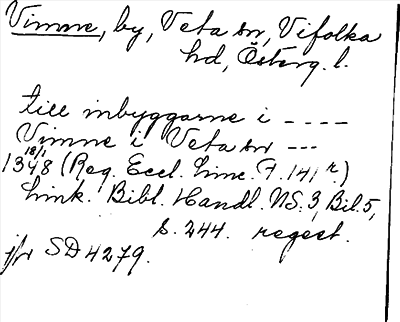 Vimne, by, Veta sn, Vifolka
hd, Österg. l.
till inbyggarne i ----
Vimne i Veta sn ---
18/1
1348 (Reg. Eccl. Linc. F. 141 r.)
Link. Bibl. Handl. NS. 3, Bil. 5,
s. 244. regest.
jfr SD 4279.